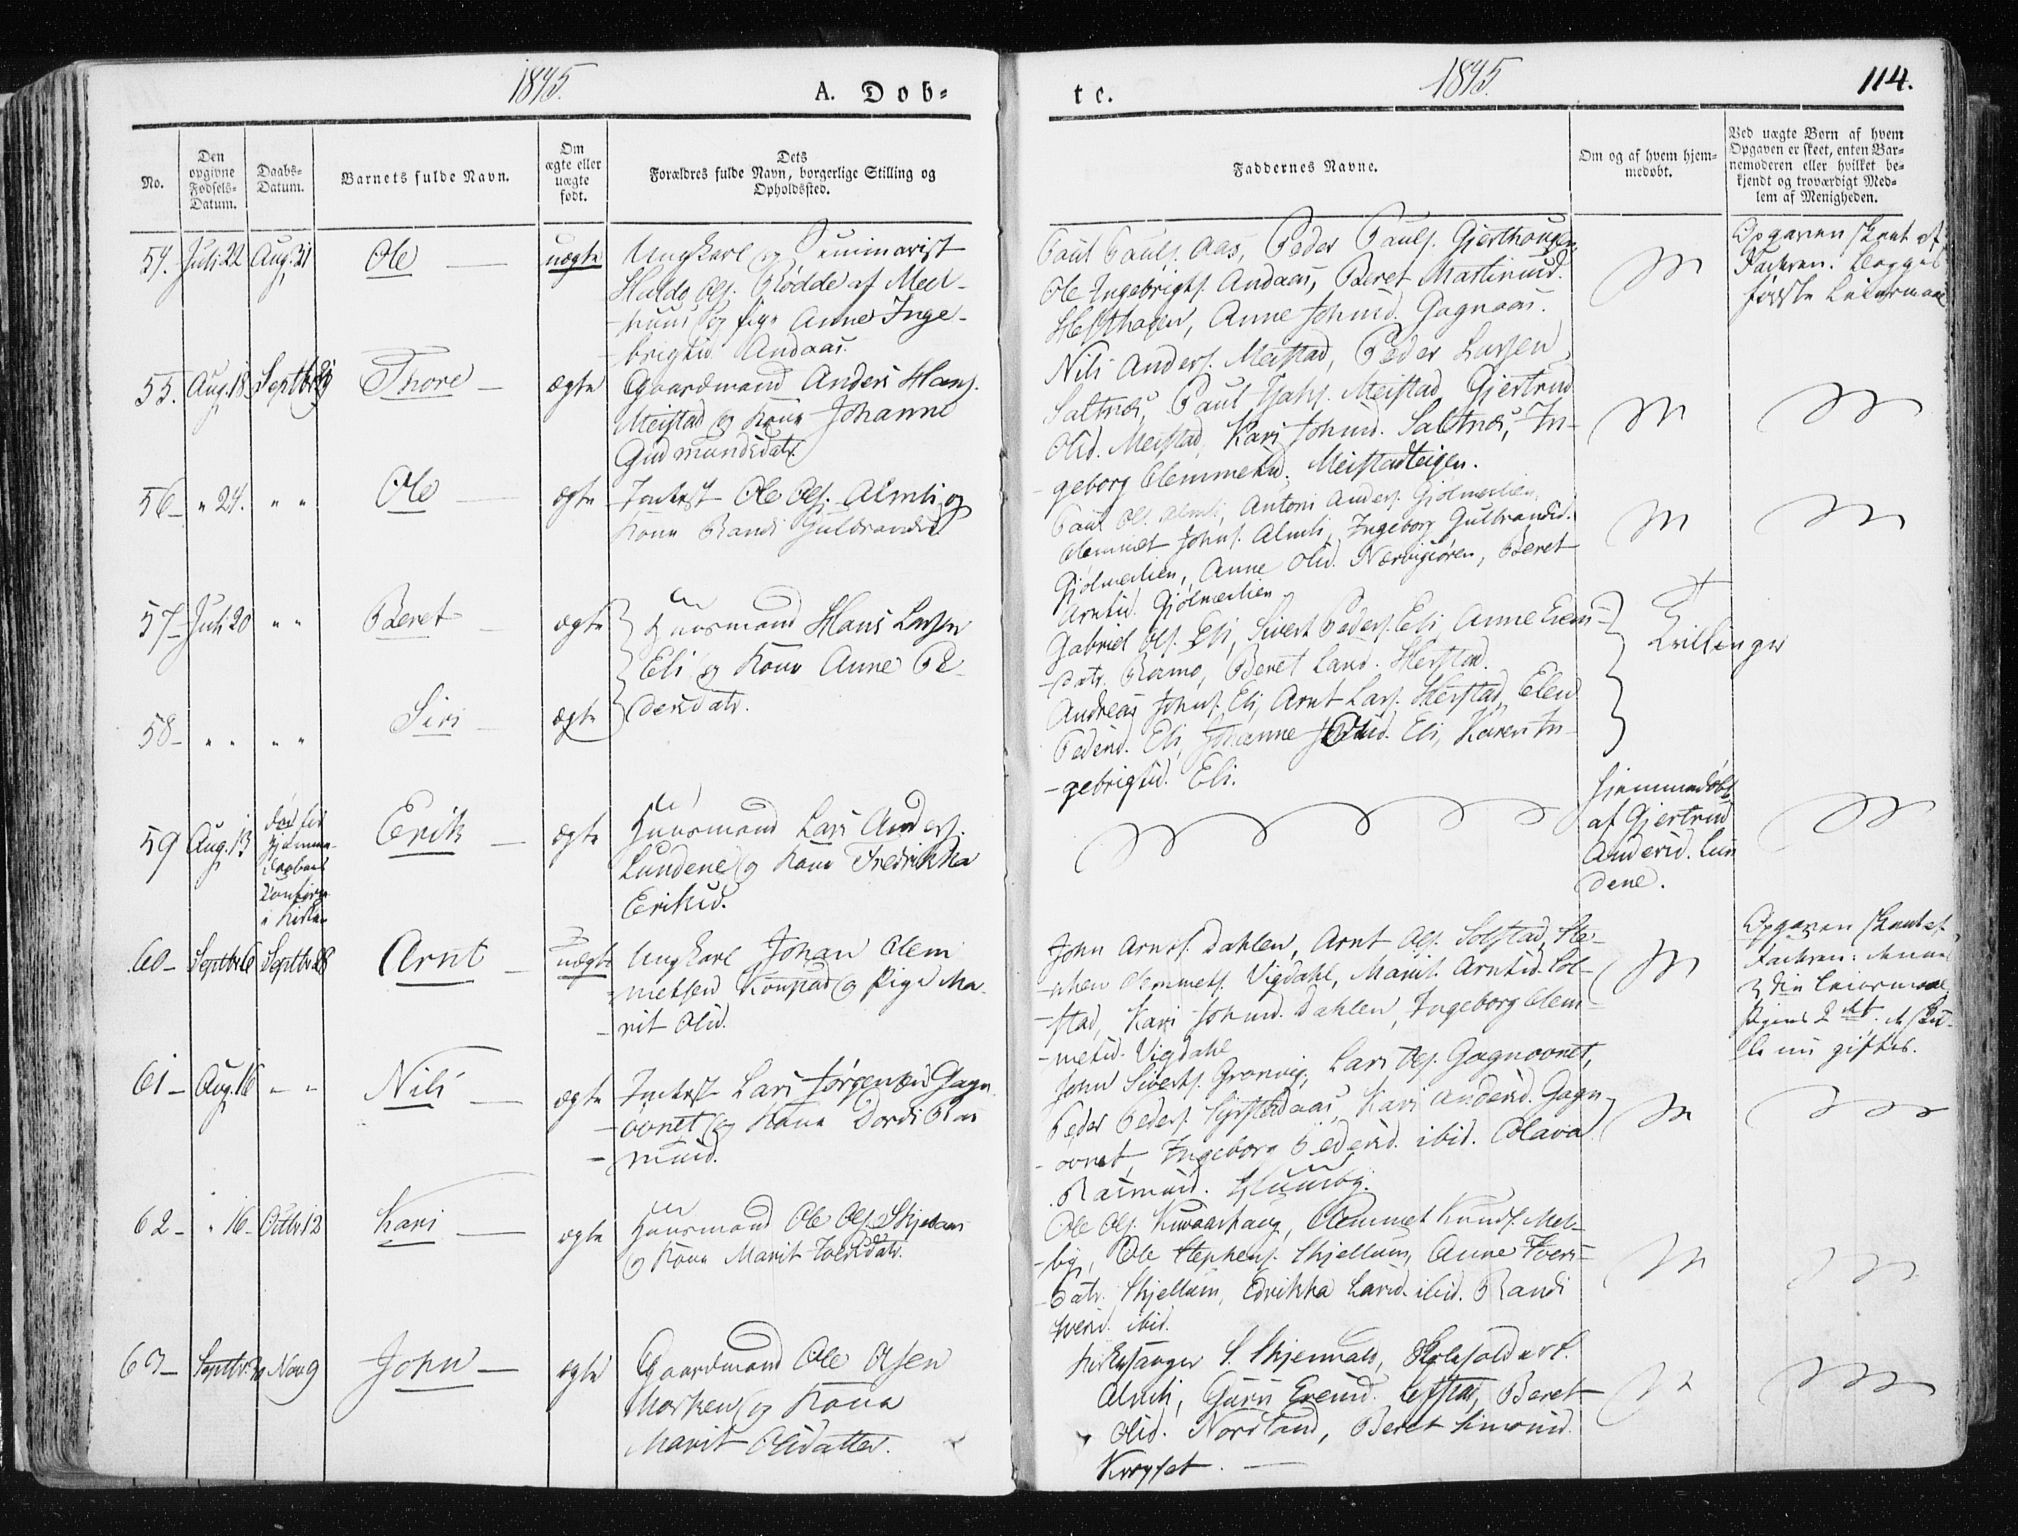 1845.
A. Døb-
te.
1845.
114.
No.
Den
opgivne
Fødsels-
Datum.
Daabs-
Datum.
Barnets fulde Navn.
Om
ægte eller
uægte
født.
Dets
Forældres fulde Navn, borgerlige Stilling og
Opholdssted.
Faddernes Navne.
Om og af hvem hjem-
medøbt.
Ved uægte Børn af hvem
Opgaven er skeet, enten Bar-
nemoderen eller hvilket be-
kjendt og troværdigt Med-
lem af Menigheden.
54. Juli 22 Aug. 31 Ole uægte Ungkarl og Seminarist
Ols. Rødde af Mel-
huus og Pige Anne Inge-
brigtsd. Andaas.
Paul Pauls. Aas, Peder Pauls. Gjerthaugen
Ole Ingebrigts. Andaas, Beret Martinusd.
Anne Johnsd. Gagnaas.
Opgaven skeet af
Faderen. Begges
første Leiermaal
55. Aug. 18 Septbr. Thore ægte Gaardmand Anders Hans.
Meistad og Kone Johanne
Gudmundsdatr.
Nils Anders. Meistad, Peder Larsen
Saltnes, Paul Meistad Gjertrud
Olsd. Meistad, Kari Johnsd. Saltnes, In-
geborg Clemmetsd. Meistadteigen.
56 " 24. " " Ole ægte Inderst Ole Ols. Almli og
Kone Randi Gulbrandsd.
Paul Ols. Almli, Antoni Anders. Gjølmeslien,
Clemmet Johns. Almli, Ingeborg Gulbrandsd.
Gjølmeslien, Anne Olsd. Beret
Arntsd. Gjølmeslien
57 Juli 20 " " Beret ægte Huusmand Hans Larsen
Eli og Kone Anne Pe-
dersdatr.
Gabriel Ols. Eli, Sivert Peders. Eli, Anne
datr. Ramo, Beret Larsd. Herstad.
Tvillinger
58 " " " " Siri ægte
Andreas Johns. Eli, Arnt Lars. Herstad, Elen
Pedersd. Eli, Johanne Olsd. Eli, Karen In-
gebrigtsd. Eli.
59 Aug. 13 Erik ægte Huusmand Lars Anders.
Lundene og Kone Fredrikka
Eriksd.
hjemmedøbt
af Gjertrud
Andersd. Lun
dene.
60 Septbr 6 Septbr 28 Arnt uægte Ungkarl Johan Clem
metsen og Pige Ma-
rit Olsd.
John Arnts. Dahlen, Arnt Ols. Solstad, Ste-
phen Clemmets. Vigdahl, Marit Arntsd. Sol-
stad, Kari Johnsd. Dahlen, Ingeborg Clem-
metsd. Vigdahl
Opgaven skeet af
Faderen:
Leiermaal
Pigens 2det.
giftes.
61 Aug. 16 " " Nils ægte Inderst Lars Jørgensen Gagn
ovnet og Kone Dordi Ras
musd.
John Siverts. Grønvig, Lars Ols. Gagnovnet,
Peder Peders. Kari Andersd. Gagn
ovnet, Ingeborg Pedersd. ibid. Olava
Rasmusd. Huusby.
62 " 16 Octbr 12 Kari ægte Huusmand Ole Ols. Skjellum
og Kone Marit Iversdatr.
Ole Ols. Clemmet Knuds. Mel-
by, Ole Stephens. Skjellum, Anne Ivers-
datr. Skjellum, Edvikka Larsd. ibid. Randi
Iversd. ibid.
63 Septbr. 30 Nov 9 John ægte Gaardmand Ole Olsen
Morken og Kone
Marit Olsdatter.
Kirkesanger S. Skjermals,
Almli, Guru Evensd. Lefstad, Beret
Olsd. Nordtand, Beret Simonsd.
Krogset.